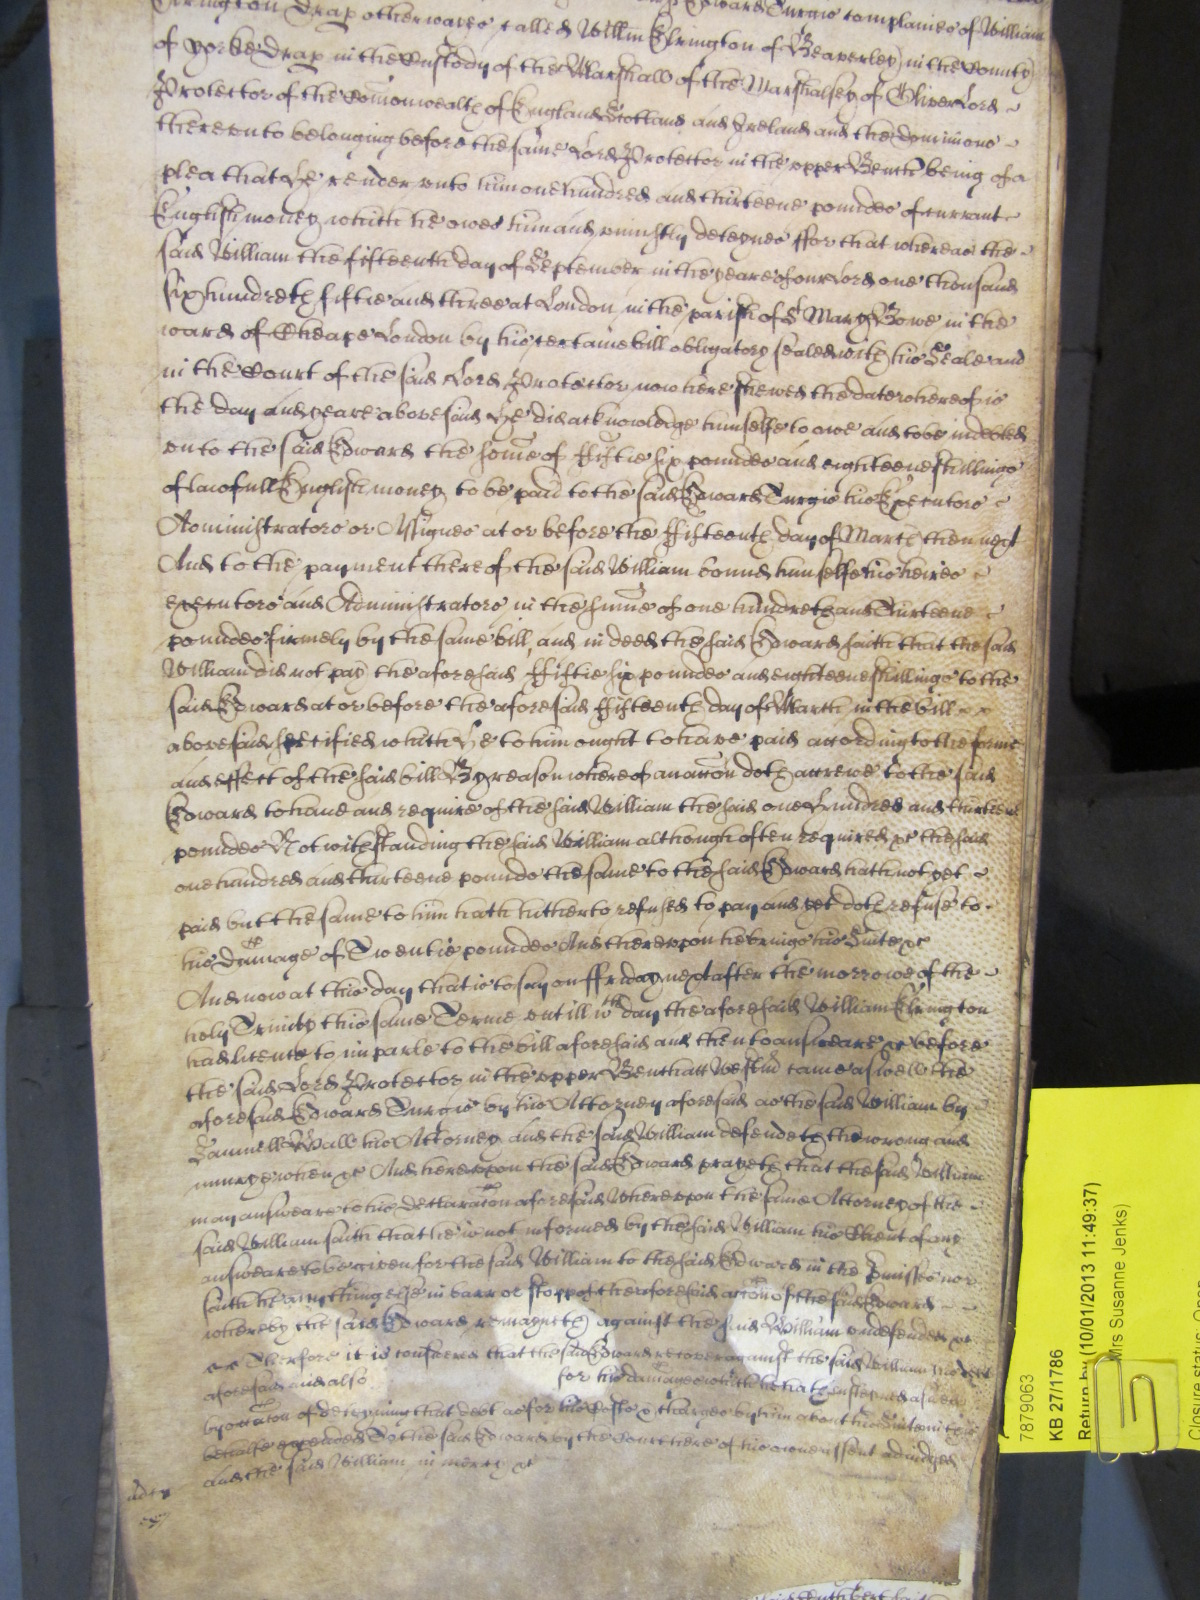 Elrington Drap otherwares called Willm Elrington of Beaperley in the County
of Yorke Drap in the Custody of the Marshall of the Marshalsey of Oliver Lord
Protector of the Comonwealth of England Scotland and Ireland and the dominions
thereunto belonging before the same Lord Protector in the upper Bench being of a
plea that he render unto him one hundred and thirteene poundes of currant
English money which he owes him and uniustly deteynes ffor that whereas the
said William the fifteenth day of September in the yeare of our Lord one thousand
six hundreth fiftie and three at London in the parish of St Mary Bowe in the
ward of Cheape London by his certaine bill obligatory sealed with his Seale and
in the Court of the said Lord Protector now here shewed the date whereof is
the day and yeare abovesaid he did acknowledge himselfe to owe and to be indebted
unto the said Edward the some of ffiftie six poundes and eighteene shillings
of lawfull English money to be paid to the said Edward Turgis his Executors
Administrators or Assignes at or before the ffifteenth day of March then next
And to the payment thereof the said William bound himselfe his heires
executors and Administrators in the sume of one hundreth and Thirteene
poundes firmely by the same bill, and in deed the said Edward saith that the said
William did not pay the aforesaid ffiftie six poundes and eighteene shillings to the
said Edward at or before the aforesaid ffifteenth day of March in the bill
abovesaid specified which he to him ought to have paid according to the forme
and effect of the said bill By reason whereof an accon doth accrewe to the said
Edward to have and require of the said William the said one hundred and thirteene
poundes Notwithstanding the said William although often required &c the said
one hundred and thirteene pounds the same to the said Edward hath not yet
paid but the same to him hath hitherto refused to pay and yet doth refuse to
his damage of Twentie poundes And thereupon he brings his Suite &c
And now at this day that is to say on ffriday next after the morrowe of the
holy Trinity this same Terme untill wch day the aforesaid William Elrington
had licence to imparle to the bill aforesaid and then to answeare &c before
the said Lord Protector in the upper Bench att Westm came aswell the
aforesaid Edward Turgis by his Attorney aforesaid as the said William by
Samuell Wall his Attorney and the said William defendeth the wrong and
iniury when &c And hereupon the said Edward prayeth that the said William
may answeare to his declaracon aforesaid Whereupon the same Attorney of the
said William saith that he is not informed by the said William his Client of any
answeare to be given for the said William to the said Edward in the pmisses nor
saith he any thing else in barr or stopp of the aforesaid accon of the said Edward
whereby the said Edward remayneth against the said William undefended &c
Therfore it is considered that the said Edward recover against the said William his debt
aforesaid and also for his damages which he hath susteyned aswell
by occacon of deteyning that debt as for his Costs & charges by him about his Suite in this
behalfe expended To the said Edward by the Court here of his owne assent adiudged
and the said William in mercy &c
7879063
KB 27/1786
Return by (10/01/2013 11:49:37)
Mrs Susanne Jenks)